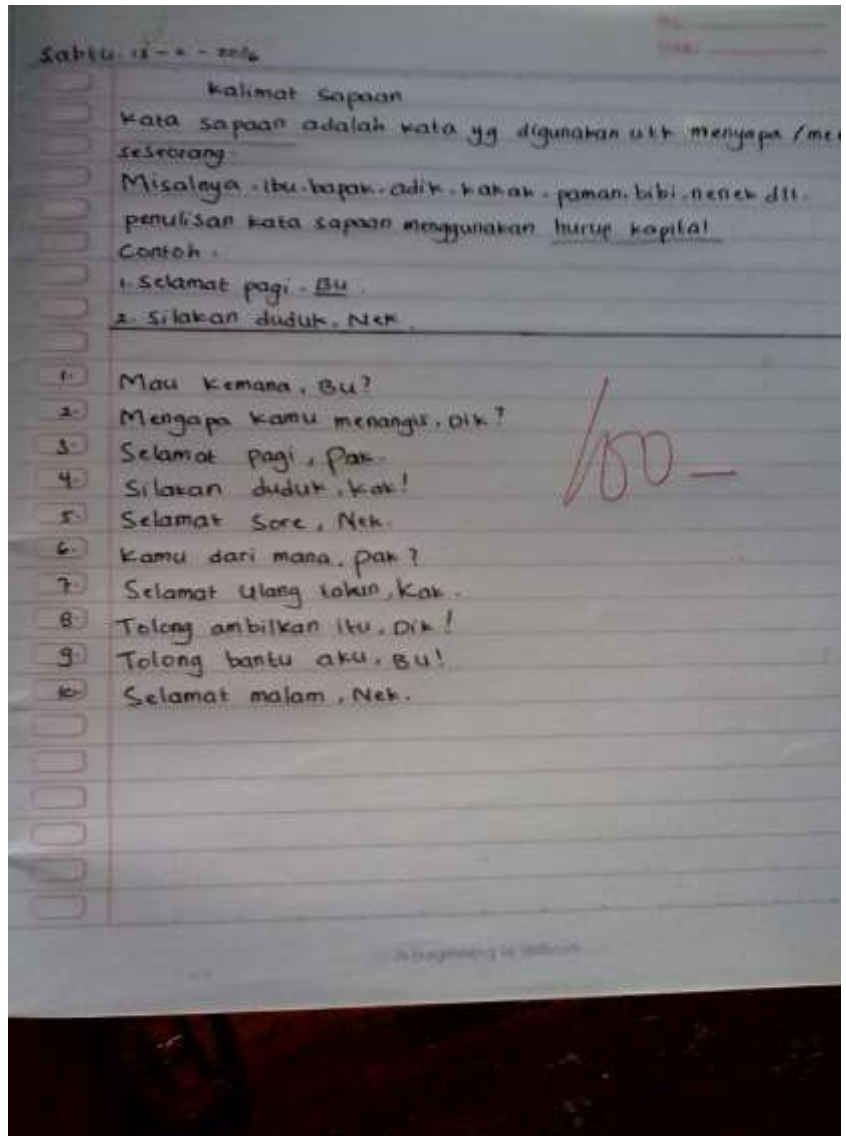 Sabtu.
Kalimat Sapaan
Kata sapaan adalah kata yg digunakan utk menyapa /me
seseorang.
Misalnya . ibu . bapak . adik . kakak . paman . bibi . nenek dll.
penulisan kata sapaan menggunakan hurup kapital
Contoh .
1. Selamat pagi . Bu .
2. Silakan duduk . Nek .
1. Mau kemana , Bu?
2. Mengapa kamu menangis , Dik ?
3. Selamat pagi , Pak.
4. Silakan duduk , Kak!
5. Selamat Sore , Nek.
6. Kamu dari mana , Pak ?
7. Selamat Ulang tahun , Kak .
8. Tolong ambilkan itu , Dik !
9. Tolong bantu aku , Bu!
10. Selamat malam , Nek.
100